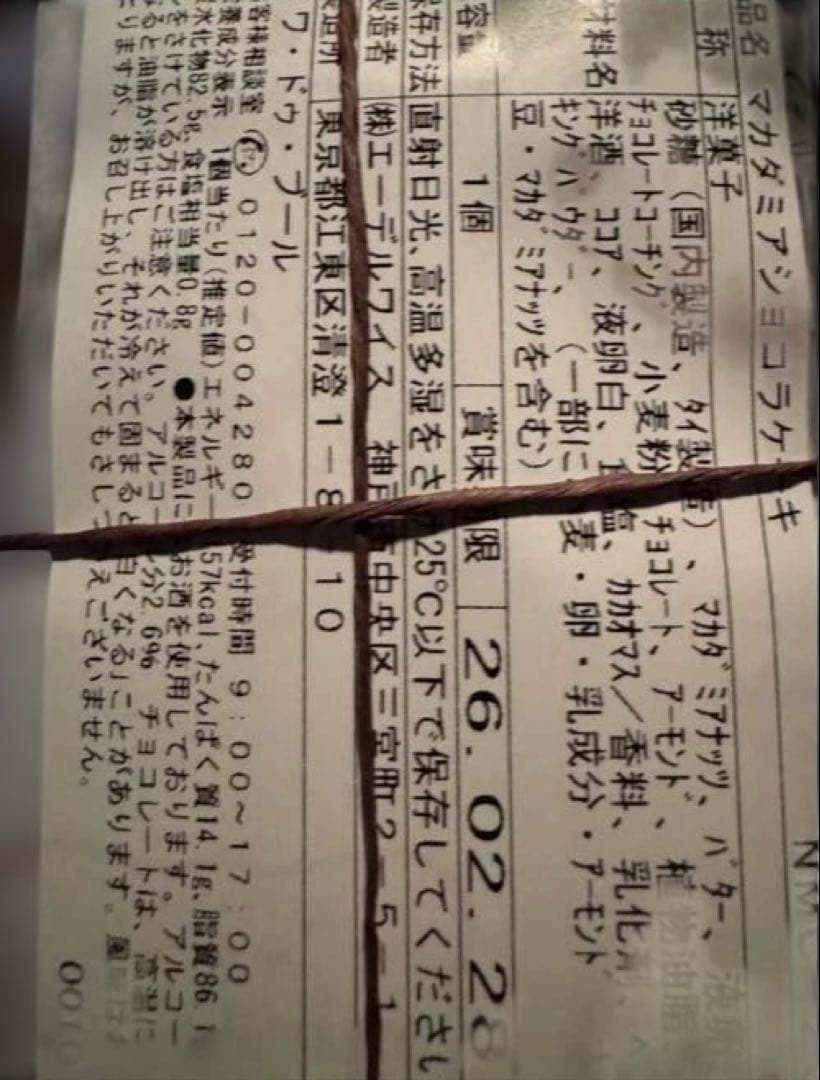 品名 マカダミアショコラケーキ
称 洋菓子
材料名 砂糖(国内製造、タイ製造)、マカダミアナッツ、バター、液卵
チョコレートコーチング、小麦粉、チョコレート、アーモンド、植物油脂
洋酒、ココア、液卵白、食塩、カカオマス/香料、乳化剤、ベ
キングパウダー、(一部に小麦・卵・乳成分・アーモンド
豆・マカダミアナッツを含む)
容量 1個 賞味期限 26.02.28
保存方法 直射日光、高温多湿をさけ25℃以下で保存してください
製造者 (株)エーデルワイス 神戸市中央区三宮町2-5-1
製造所 東京都江東区清澄1-8-10
ワ・ドゥ・ブール
客様相談室 0120-004280 受付時間 9:00~17:00
養成分表示 1個当たり(推定値)エネルギー 57kcal、たんぱく質14.1g、脂質86.1
水化物82.5g、食塩相当量0.8g ●本製品にはお酒を使用しております。アルコー
をさけている方はご注意ください。アルコール分2.6% チョコレートは、高温に
なると油脂が溶け出し、それが冷えて固まると「白くなる」ことがあります。風味は
りますが、お召し上がりいただいてもさしつかえございません。
0010